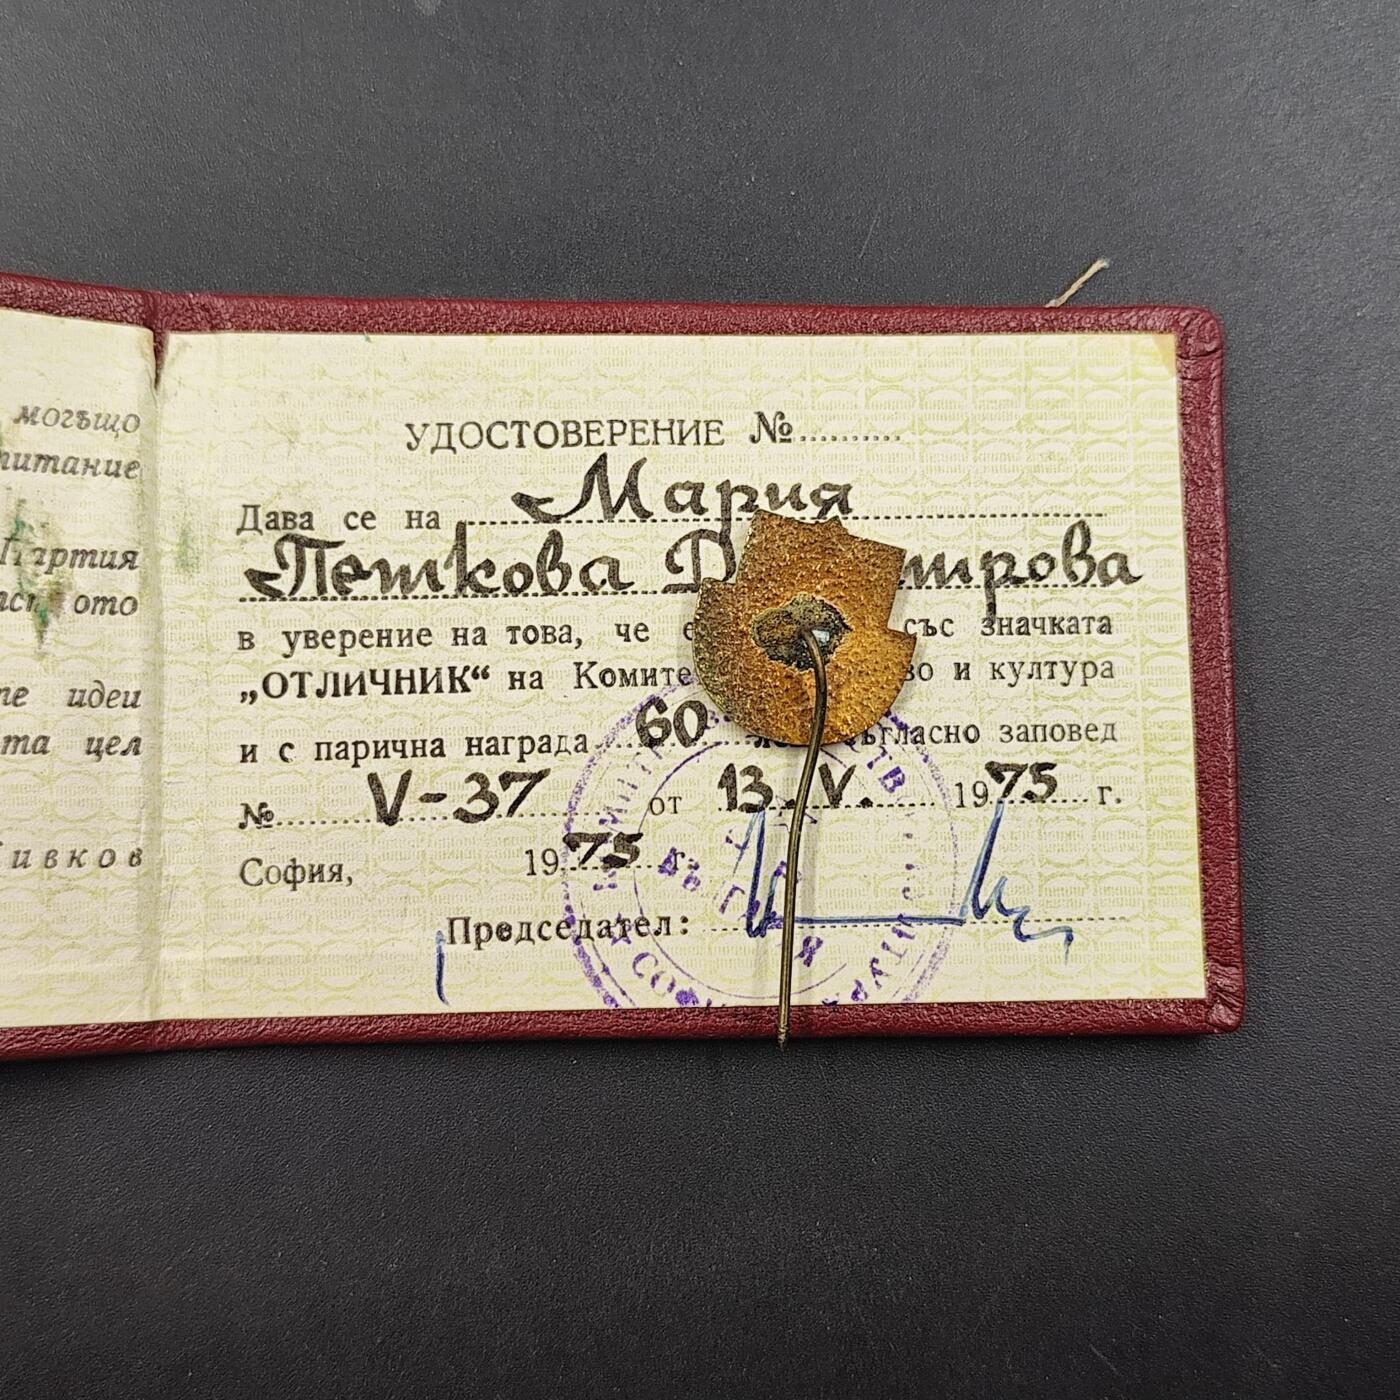 могъщо
питание
Партия
ото
те идеи
та цел
ивков
УДОСТОВЕРЕНИЕ №..........
Дава се на Мария
Петкова Д митрова
в уверение на това, че е със значката
„ОТЛИЧНИК“ на Комите во и култура
и с парична награда 60 ъгласно заповед
№ V-37 от 13.V. 1975 г.
София, 1975 г.
Председател: